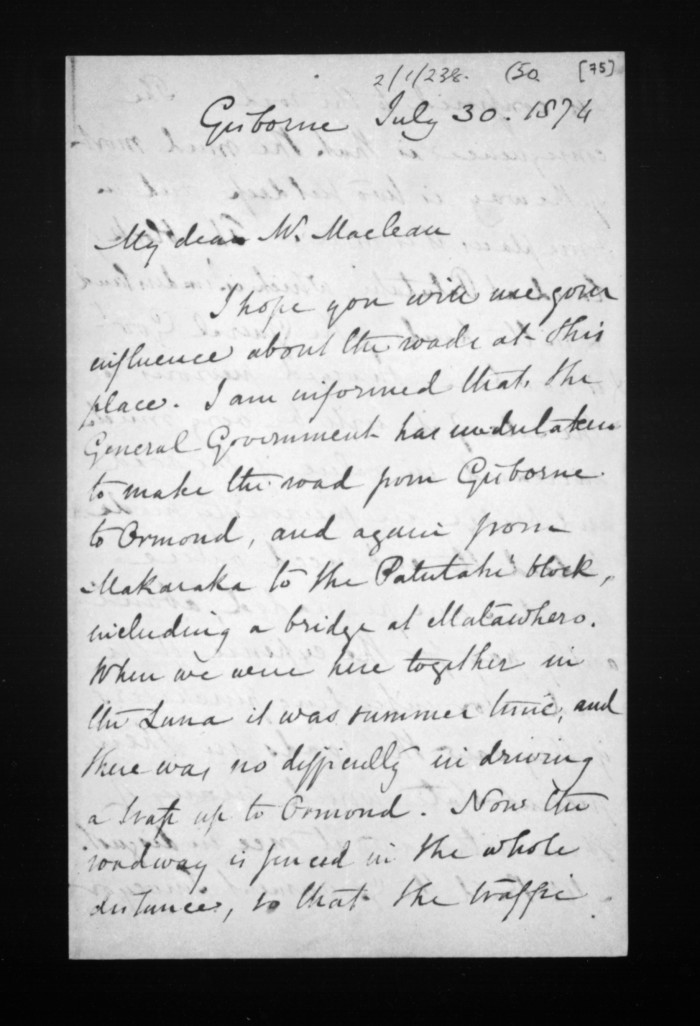 2/1/238. (50 [75]
Gisborne July 30. 1874
My dear Mr. Maclean
I hope you will use your
influence about the roads at this
place. I am informed that the
General Government has undertaken
to make the road from Gisborne
to Ormond, and again from
Makaraka to the Patutahi block,
including a bridge at Matawhero.
When we were here together in
the Luna it was summer time, and
there was no difficulty in driving
a trap up to Ormond. Now the
roadway is fenced in the whole
distance, so that the traffic